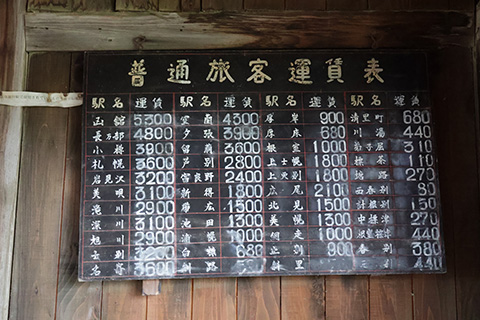 普通旅客運賃表
駅名 運賃 駅名 運賃 駅名 運賃 駅名 運賃
函館 5300 室蘭 4300 厚岸 900 清里町 680
長万部 4800 夕張 3900 厚床 680 川湯 440
小樽 3900 留萌 3600 根室 1000 弟子屈 310
札幌 3600 芦別 2800 上士幌 1800 標茶 110
岩見沢 3200 富良野 2400 上 1800 270
美唄 3100 新得 1800 広尾 2100 西春別 80
滝川 2900 帯広 1300 北見 1500 計根別 150
深川 3100 池田 1300 美幌 1500 中標津 270
旭川 2900 浦幌 1000 網走 1000 根室標津 440
士別 3200 白糠 680 斜里 900 春別 380
名寄 3600 釧路 斜里 440